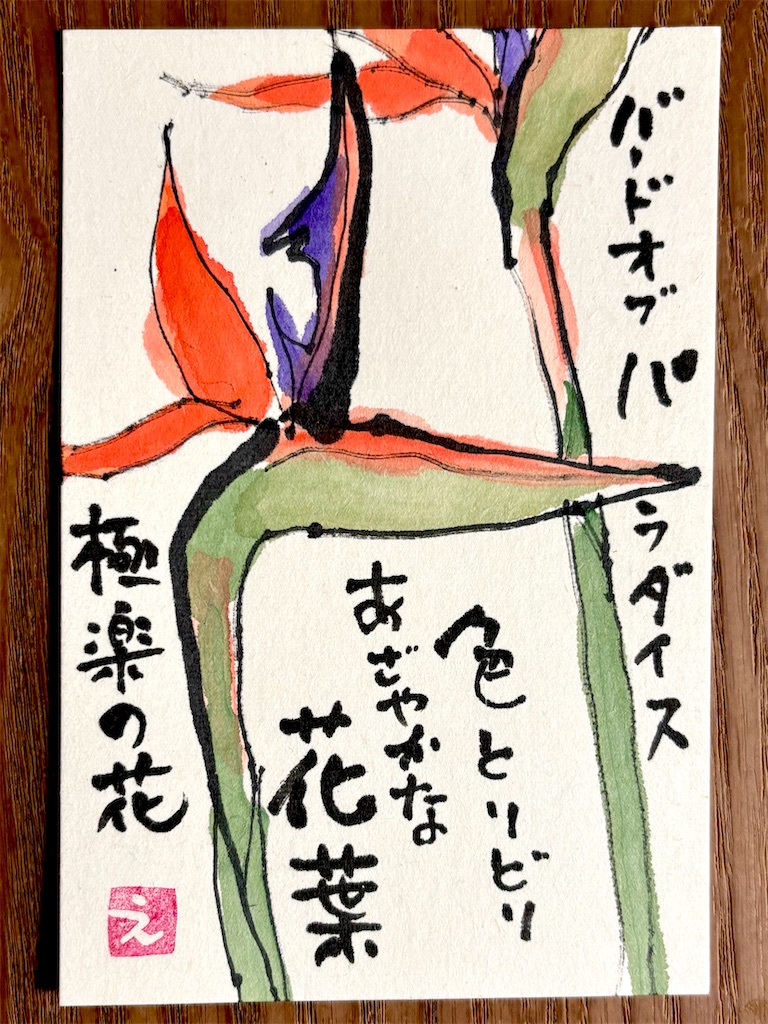 バードオブパラダイス
色とりどり
あざやかな
花葉
極楽の花
え